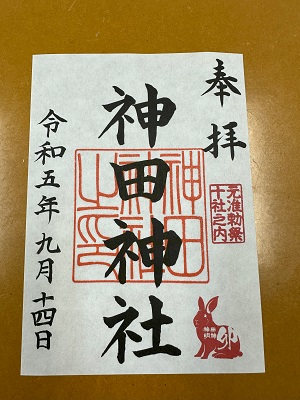 奉拝
元准勅祭
十社之内
卯
神田神社
神田
神社
之印
令和五年九月十四日